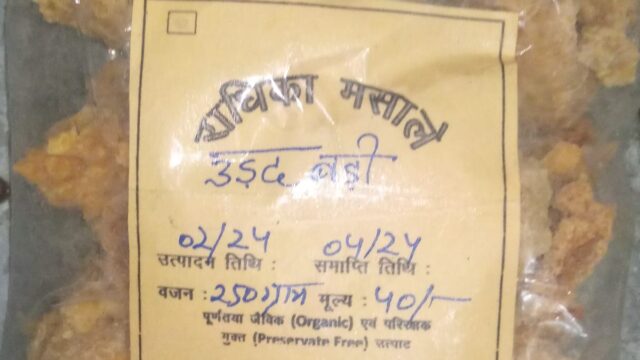 राधिका मसाले
उड़द बड़ी
02/24 04/24
उत्पादन तिथि : समाप्ति तिथि :
वजन : 250 ग्राम मूल्य : 40/-
पूर्णतया जैविक (Organic) एवं परिरक्षक
मुक्त (Preservate Free) उत्पाद